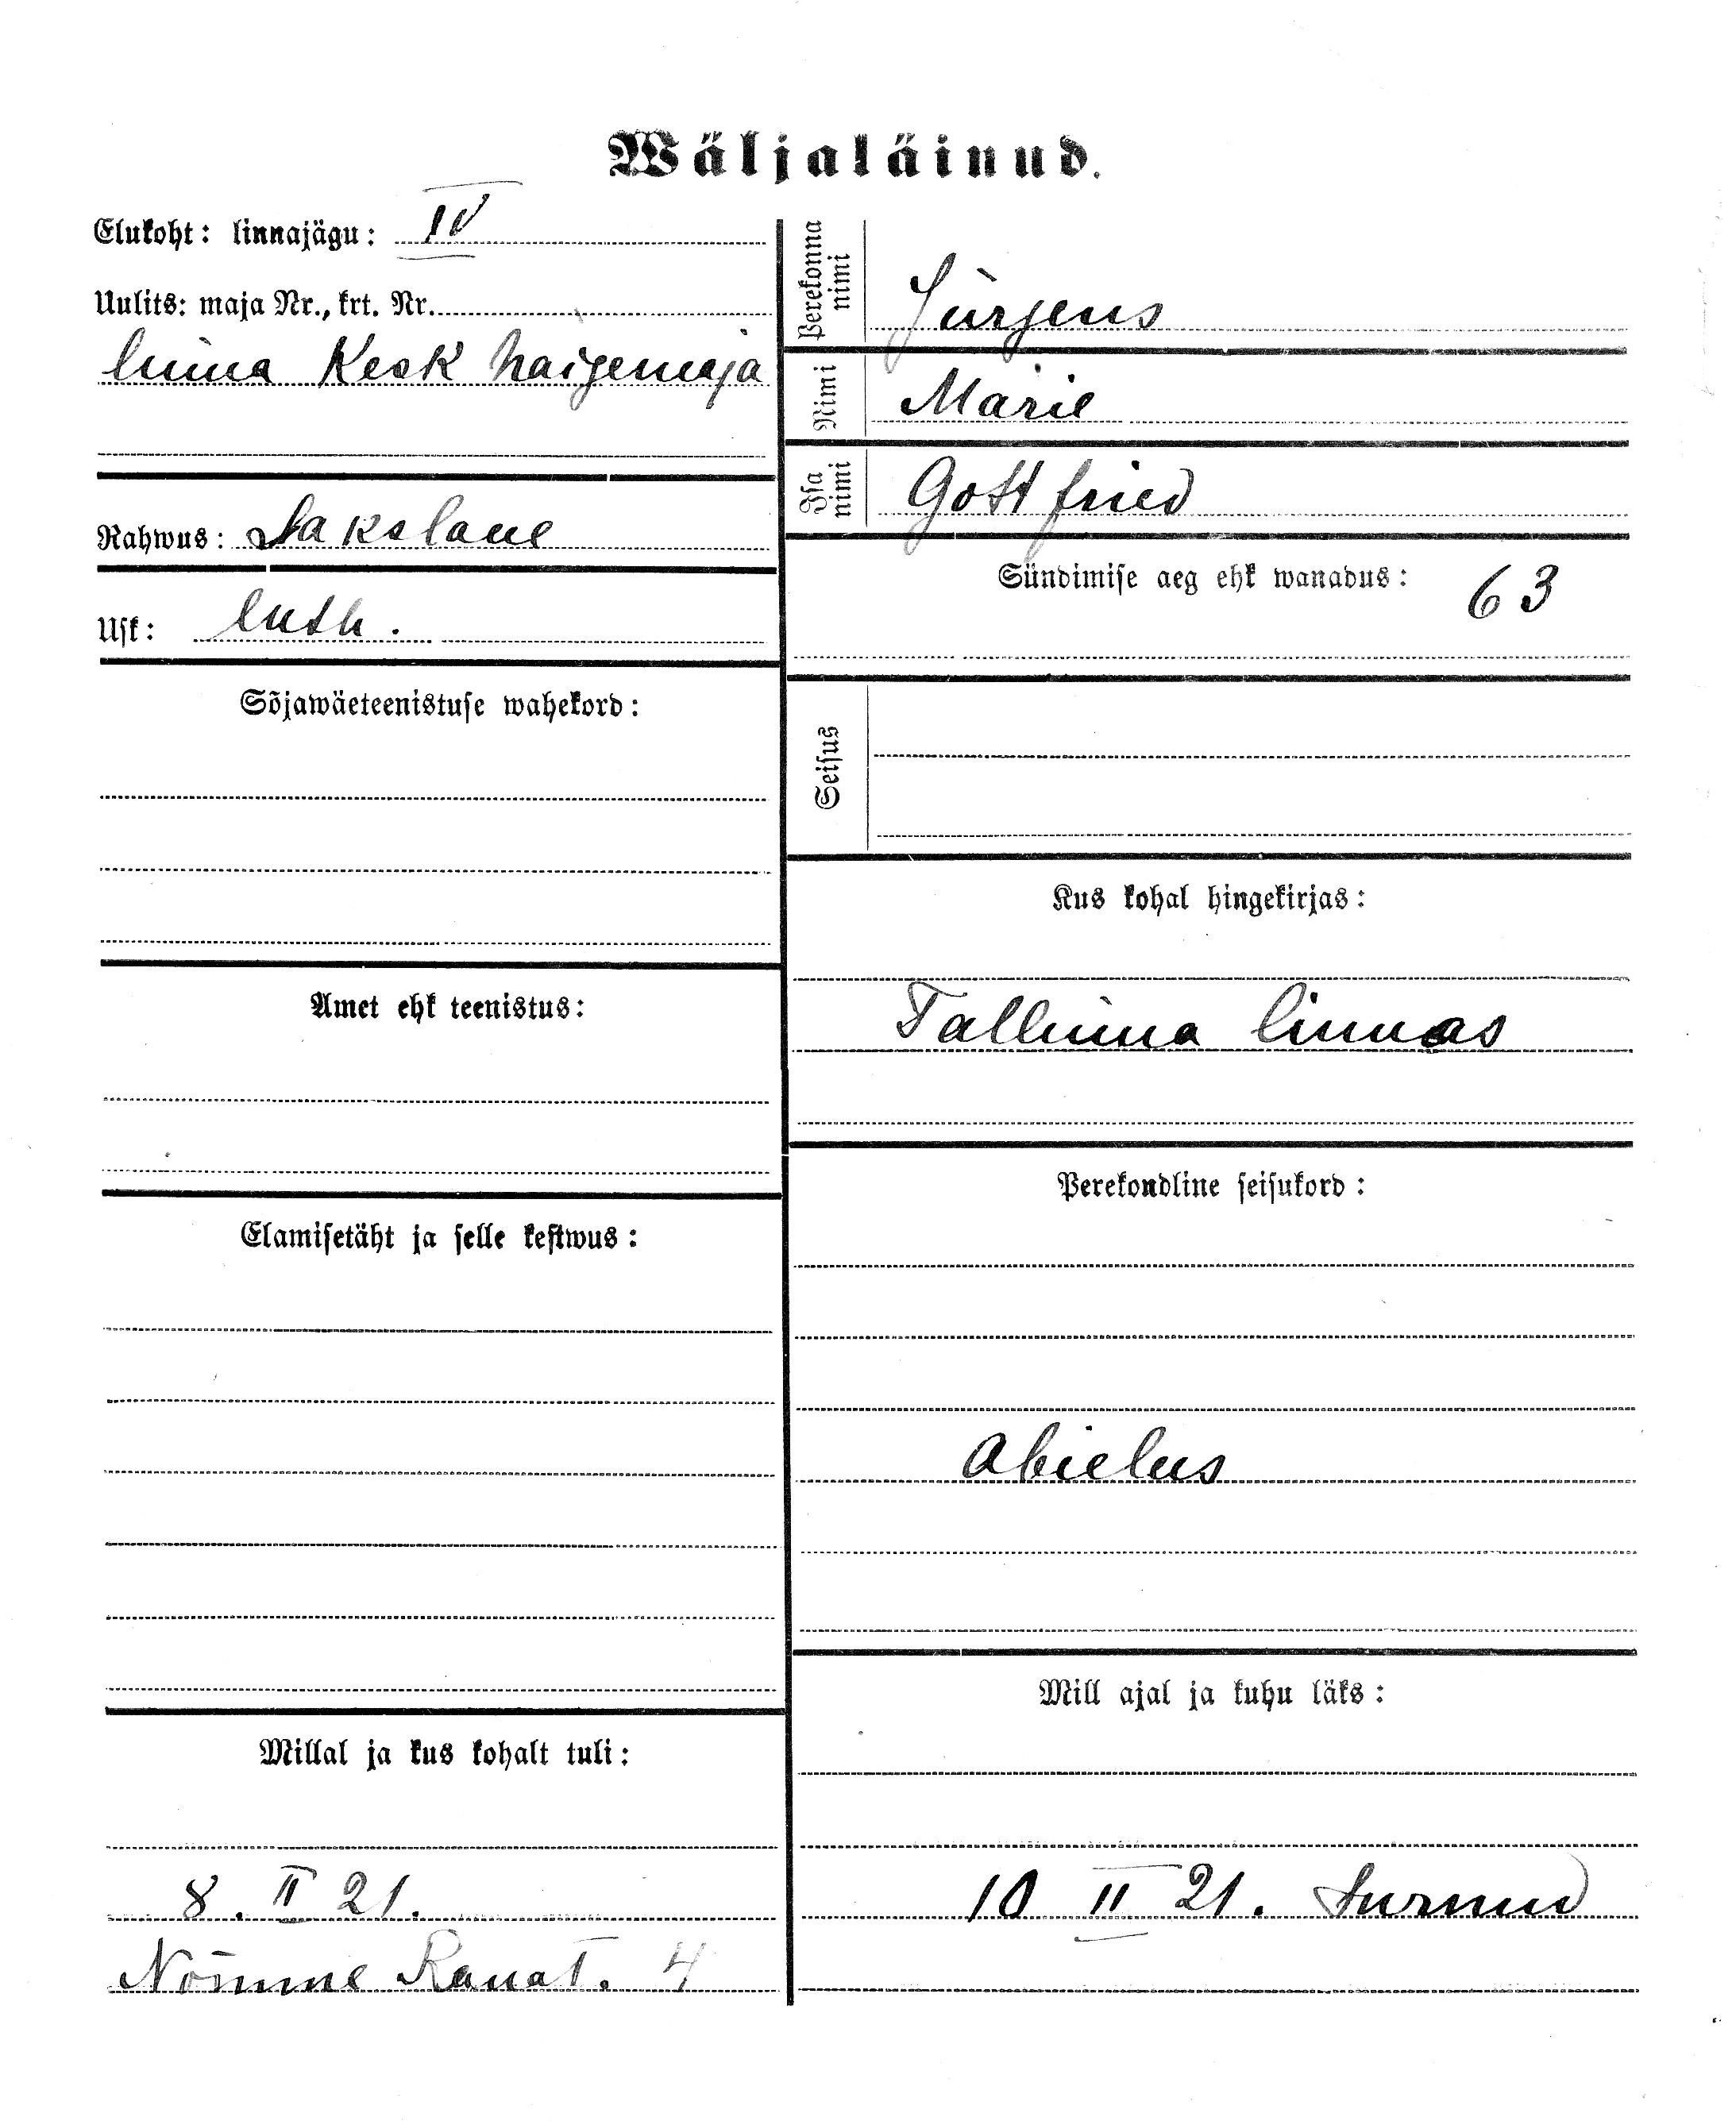 Wäljaläinud.
Elukoht: linnajägu: IV
Uulits: maja Nr., krt. Nr.
linna Kesk haigemaja
Rahwus: Sakslane
Usk: luth.
Sõjawäeteenistuse wahekord:
Amet ehk teenistus:
Elamisetäht ja selle kestwus:
Millal ja kus kohalt tuli:
8. II 21.
Nõmme Ranat. 4
Perekonna nimi
Jürgens
Nimi
Marie
Isa nimi
Gottfried
Sündimise aeg ehk wanadus: 63
Seisus
Kus kohal hingekirjas:
Tallinna linnas
Perekondline seisukord:
Abielus
Mill ajal ja kuhu läks:
10 II 21. Surnud